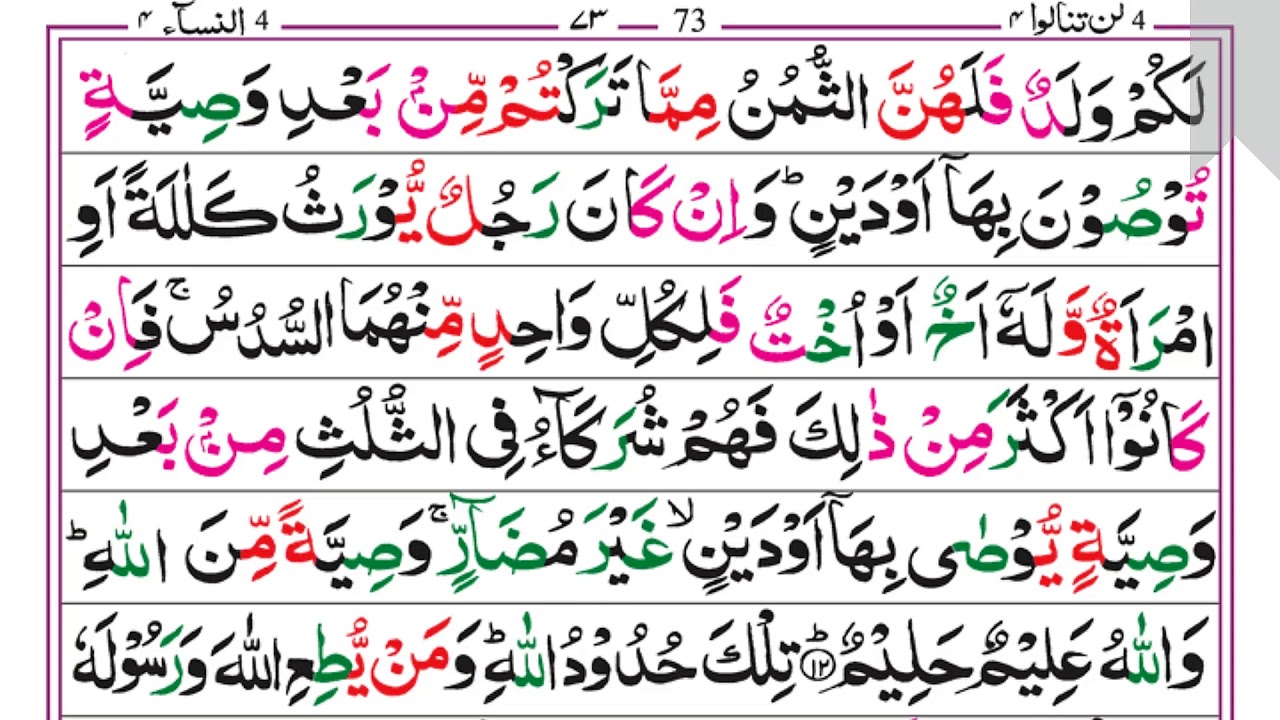 لن تنالوا ۴ 4 73 — ۷۳ 4 النسآء ۴
لَكُمْ وَلَدٌ فَلَهُنَّ الثُّمُنُ مِمَّا تَرَكْتُمْ مِّنْۢ بَعْدِ وَصِيَّةٍ
تُوْصُوْنَ بِهَآ اَوْ دَيْنٍ ؕ وَ اِنْ كَانَ رَجُلٌ يُّوْرَثُ كَلٰلَةً اَوِ
امْرَاَةٌ وَّ لَهٗۤ اَخٌ اَوْ اُخْتٌ فَلِكُلِّ وَاحِدٍ مِّنْهُمَا السُّدُسُ ۚ فَاِنْ
كَانُوْۤا اَكْثَرَ مِنْ ذٰلِكَ فَهُمْ شُرَكَآءُ فِى الثُّلُثِ مِنْۢ بَعْدِ
وَصِيَّةٍ يُّوْصٰى بِهَآ اَوْ دَيْنٍ ۙ غَيْرَ مُضَآرٍّ ۚ وَصِيَّةً مِّنَ اللّٰهِ ؕ
وَ اللّٰهُ عَلِيْمٌ حَلِيْمٌ ؕ ۱۲ تِلْكَ حُدُوْدُ اللّٰهِ ؕ وَ مَنْ يُّطِعِ اللّٰهَ وَ رَسُوْلَهٗ